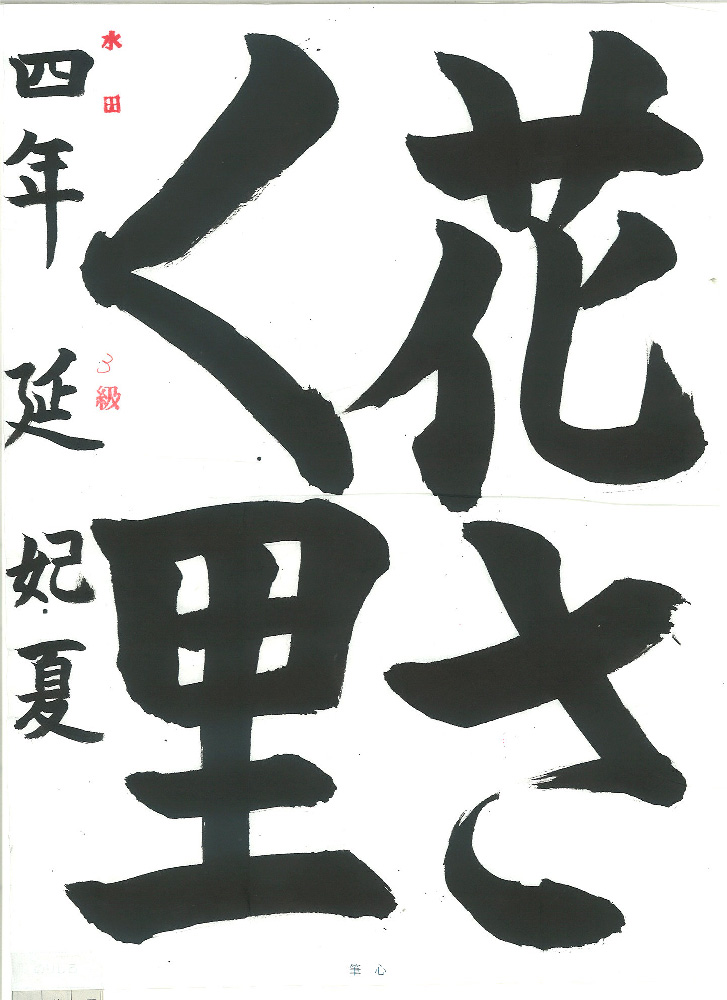 花さ
く里
四年 延 妃夏
水田
3級
筆心